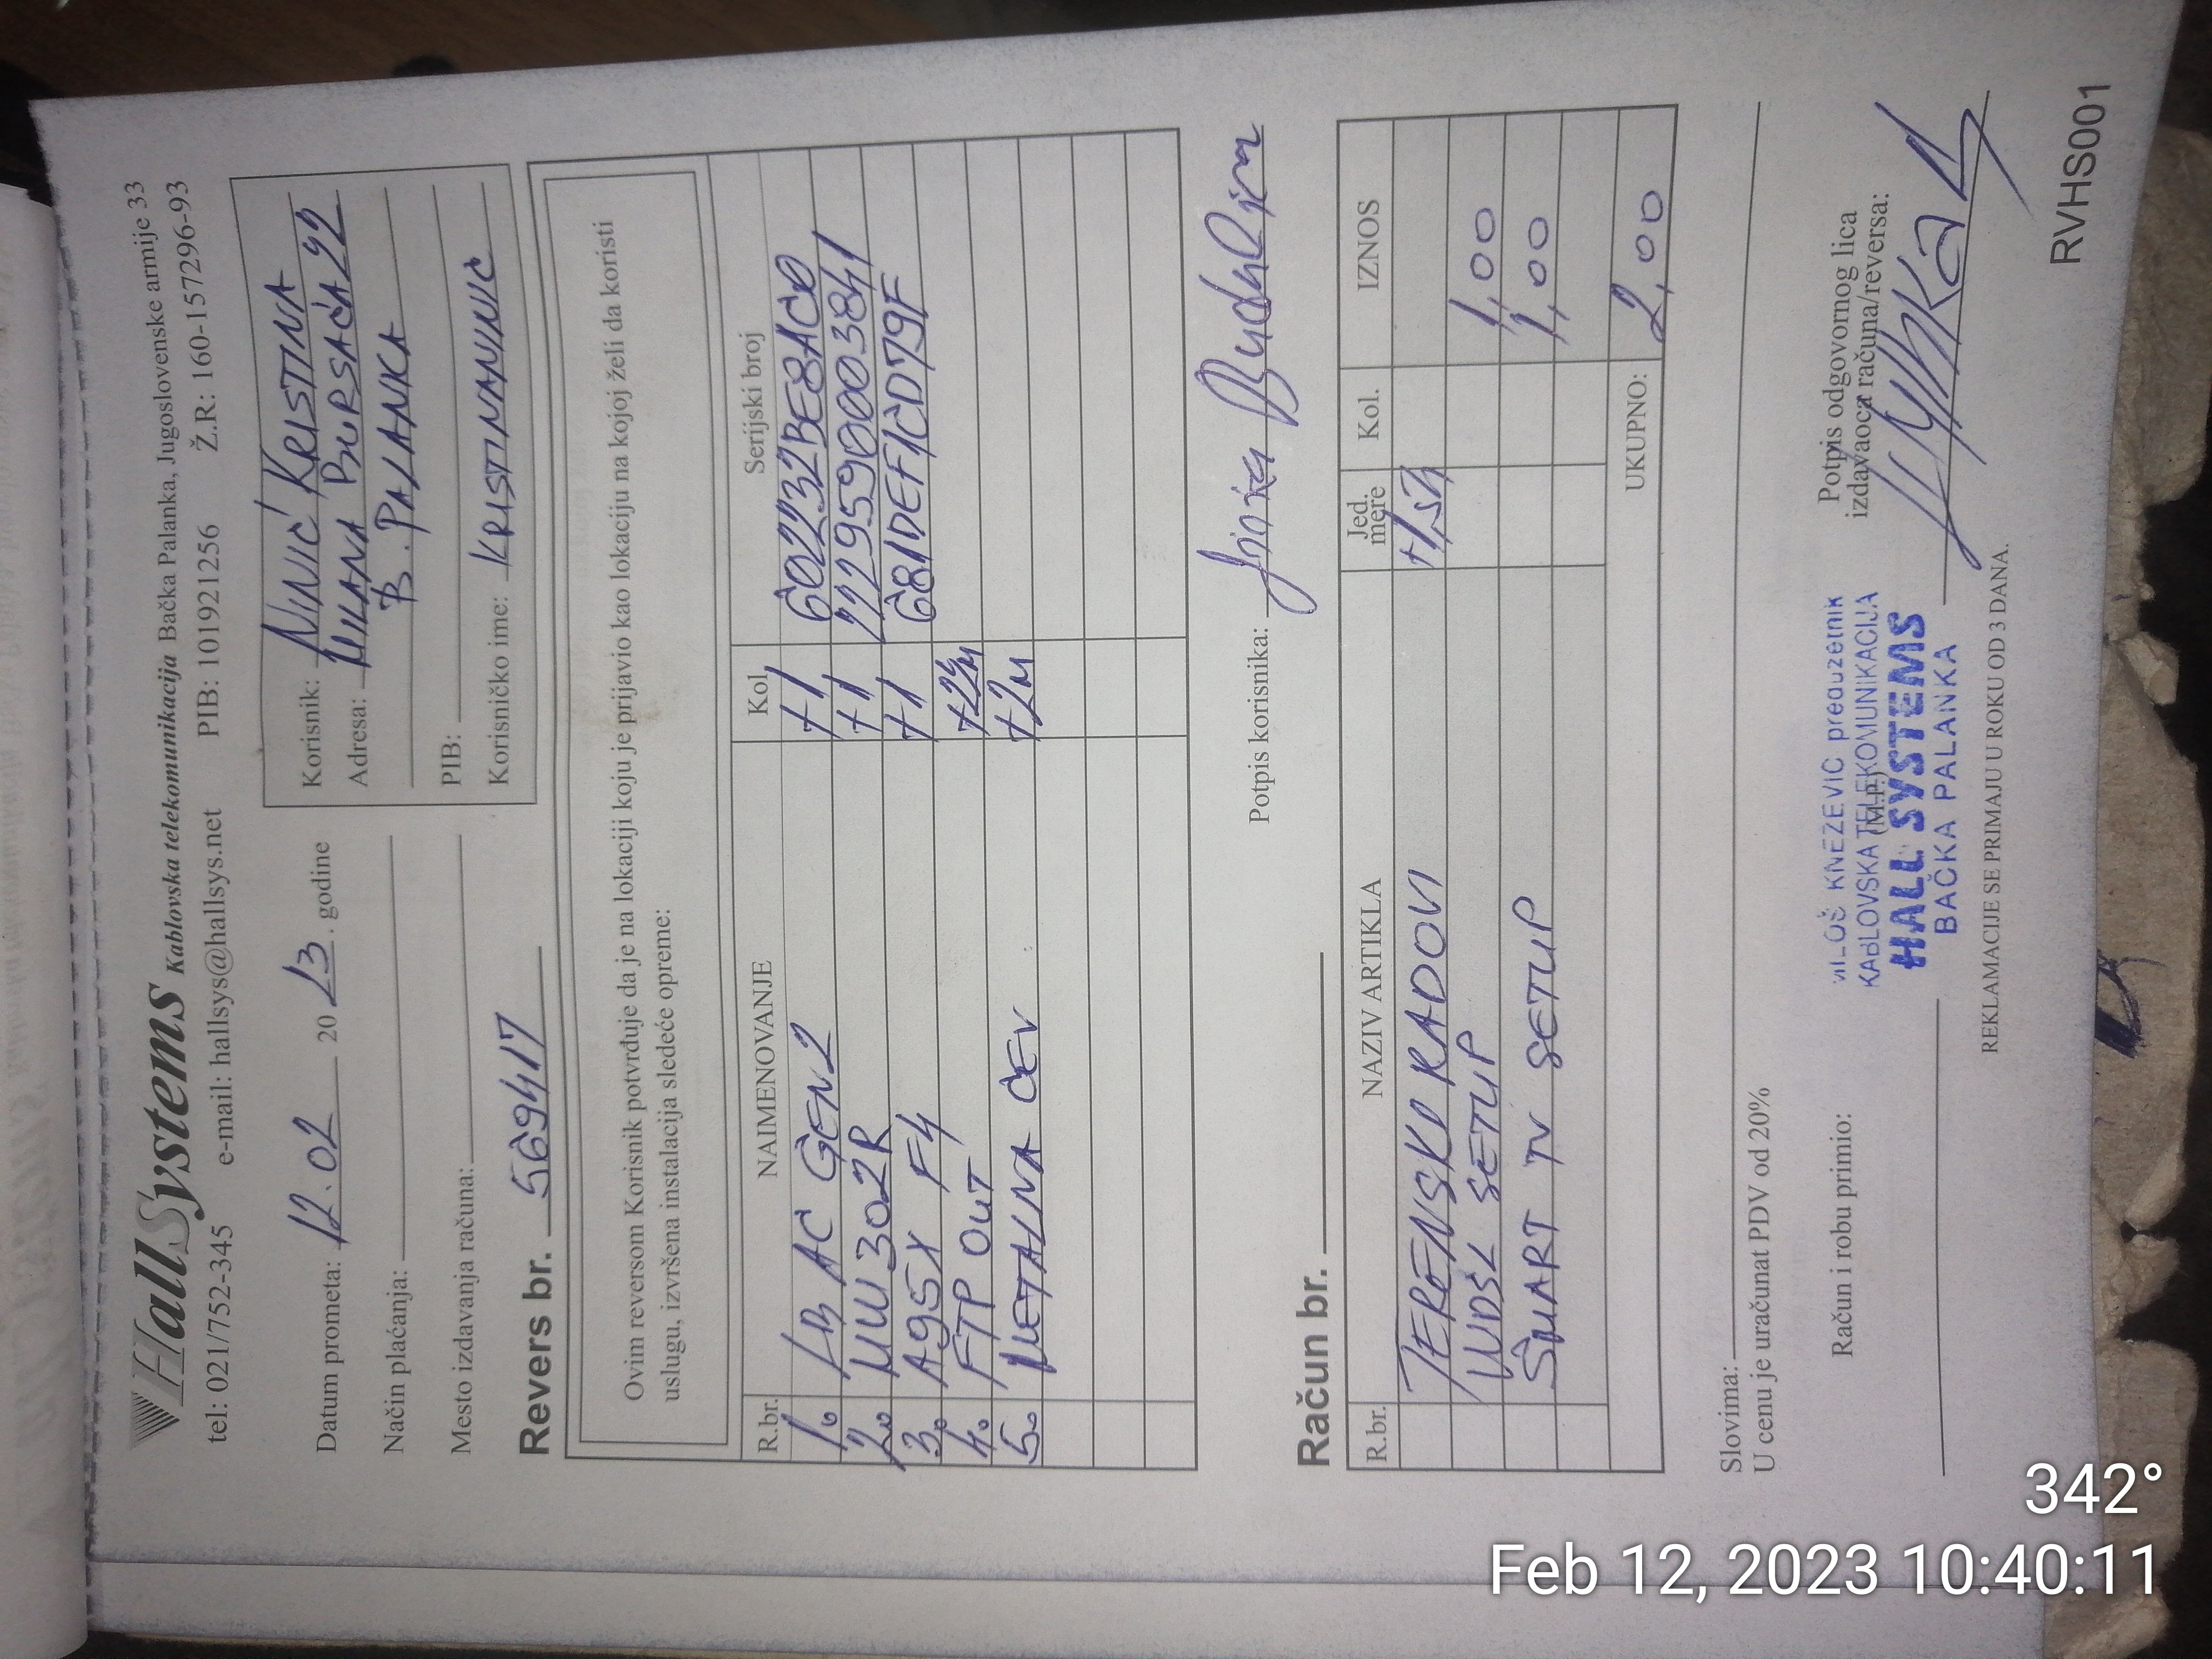 HallSystems Kablovska telekomunikacija Bačka Palanka, Jugoslovenske armije 33
tel: 021/752-345 e-mail: hallsys@hallsys.net PIB: 101921256 Ž.R: 160-157296-93
Datum prometa: 12.02 2023. godine
Način plaćanja:
Mesto izdavanja računa:
Korisnik: NINIĆ KRISTINA
Adresa: MILANA BURSAĆA 42
B. PALANKA
PIB:
Korisničko ime: KRISTINANINIC
Revers br. 569417
Ovim reversom Korisnik potvrđuje da je na lokaciji koju je prijavio kao lokaciju na kojoj želi da koristi
uslugu, izvršena instalacija sledeće opreme:
R.br. NAIMENOVANJE Kol. Serijski broj
1. LB AC GEN2 +1 602232BE8AC0
2. MW302R +1 2229590003841
3. A95X F4 +1 681DEF1CD79F
4. FTP OUT
5. METALNA CEV +2M
Potpis korisnika:
Račun br.
R.br. NAZIV ARTIKLA Jed. mere Kol. IZNOS
TERENSKI RADOVI
WDSL SETUP 1,00
SMART TV SETUP 1,00
UKUPNO: 2,00
Slovima:
U cenu je uračunat PDV od 20%
Račun i robu primio:
(M.P.)
MILOŠ KNEZEVIC preduzetnik
KABLOVSKA TELEKOMUNIKACIJA
HALL SYSTEMS
BAČKA PALANKA
Potpis odgovornog lica
izdavaoca računa/reversa:
REKLAMACIJE SE PRIMAJU U ROKU OD 3 DANA.
RVHS001
342°
Feb 12, 2023 10:40:11